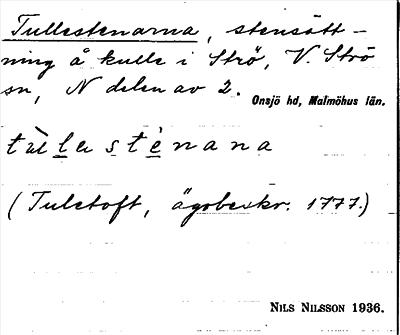 Tullestenarna, stensätt-
ning å kulle i Strö, V. Strö
sn, N delen av 2.
Onsjö hd, Malmöhus län.
tùllestènana
(Tuletoft, ägobeskr. 1777.)
NILS NILSSON 1936.